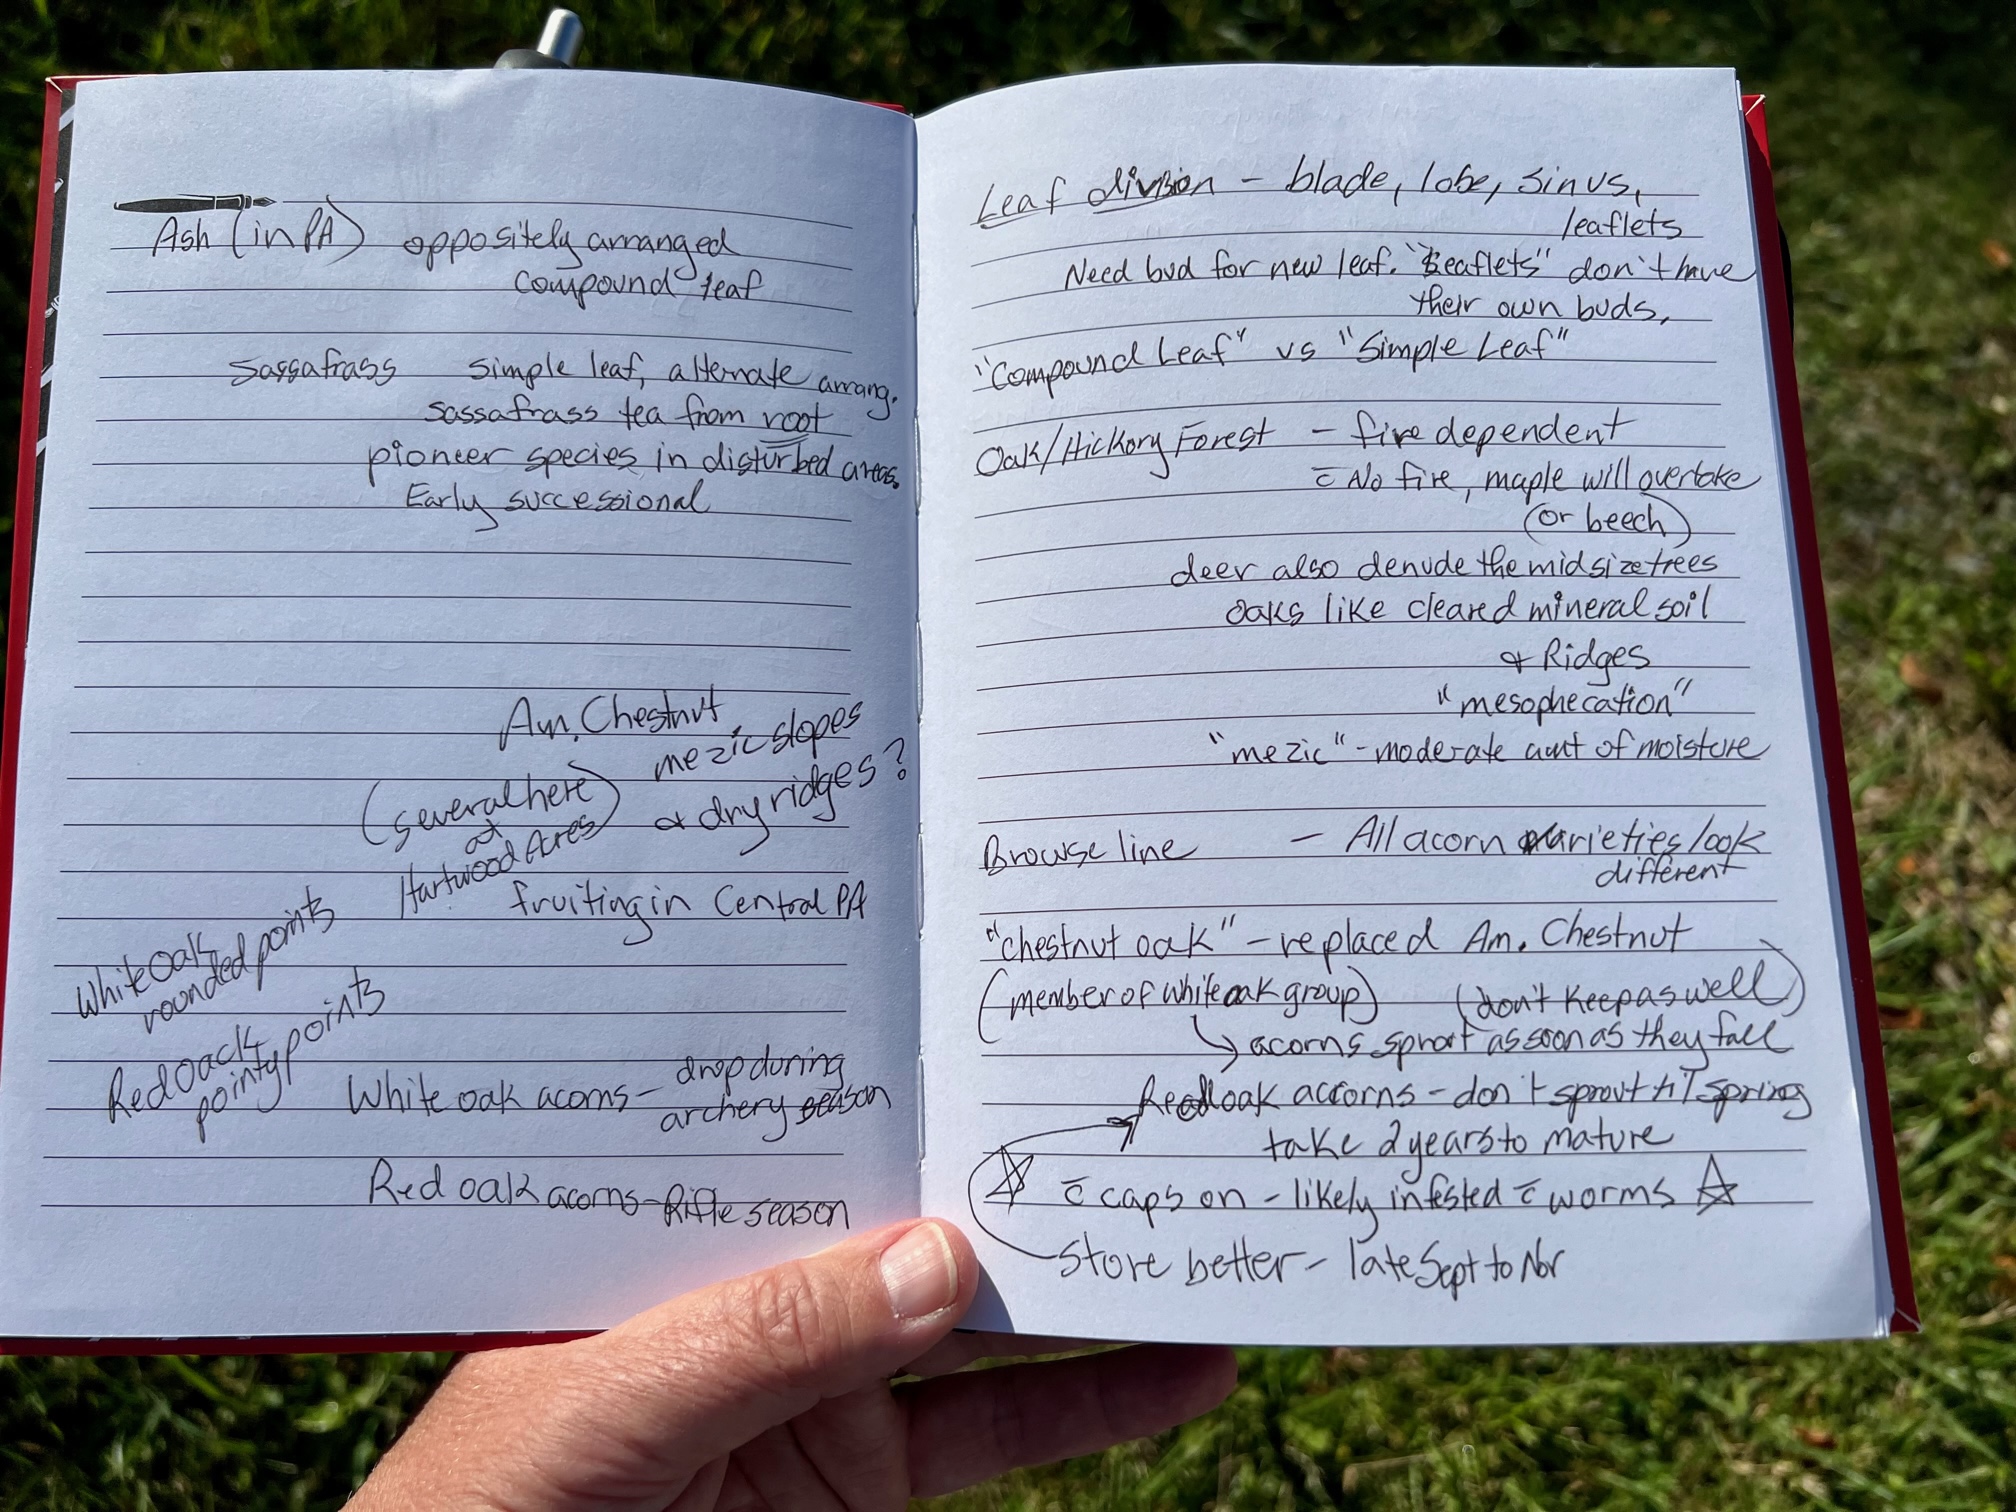 Ash (in PA) oppositely arranged
compound leaf
Sassafrass simple leaf, alternate arrang.
sassafrass tea from root
pioneer species in disturbed areas.
Early successional
Am. Chestnut
mezic slopes
(several here)
at
Hartwood Acres
& dry ridges?
fruiting in Central PA
White Oak
rounded points
Red oack
pointy points
White oak acorns - drop during
archery season
Red oak acorns - Rifle season
Leaf division - blade, lobe, sinus,
leaflets
Need bud for new leaf. "Leaflets" don't have
their own buds,
"Compound Leaf" vs "Simple Leaf"
Oak/Hickory Forest - fire dependent
c̄ No fire, maple will overtake
(or beech)
deer also denude the midsize trees
oaks like cleared mineral soil
& Ridges
"mesophecation"
"mezic" - moderate amt of moisture
Browse line - All acorn varieties look
different
"chestnut oak" - replaced Am. Chestnut
(member of white oak group) (don't keep as well)
↳ acorns sprout as soon as they fall
Red oak accorns - don't sprout til spring
take 2 years to mature
☆ c̄ caps on - likely infested c̄ worms ☆
Store better - late Sept to Nov